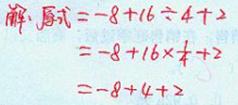 解：原式=-8+16÷4+2
=-8+16×1/4+2
=-8+4+2